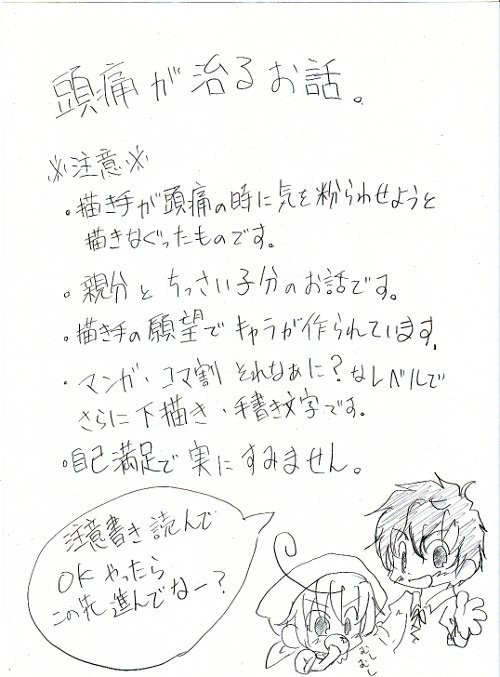 頭痛が治るお話。
※注意※
・描き手が頭痛の時に気を粉られせようと
描きなぐったものです。
・親分とちっさい子分のお話です。
・描き手の願望でキャラが作られています。
・マンガ、コマ割 それなぁに?なレベルで
さらに下描き・手書き文字です。
・自己満足で実にすみません。
注意書き読んで
OKやったら
この先進んでなー?
むしむし